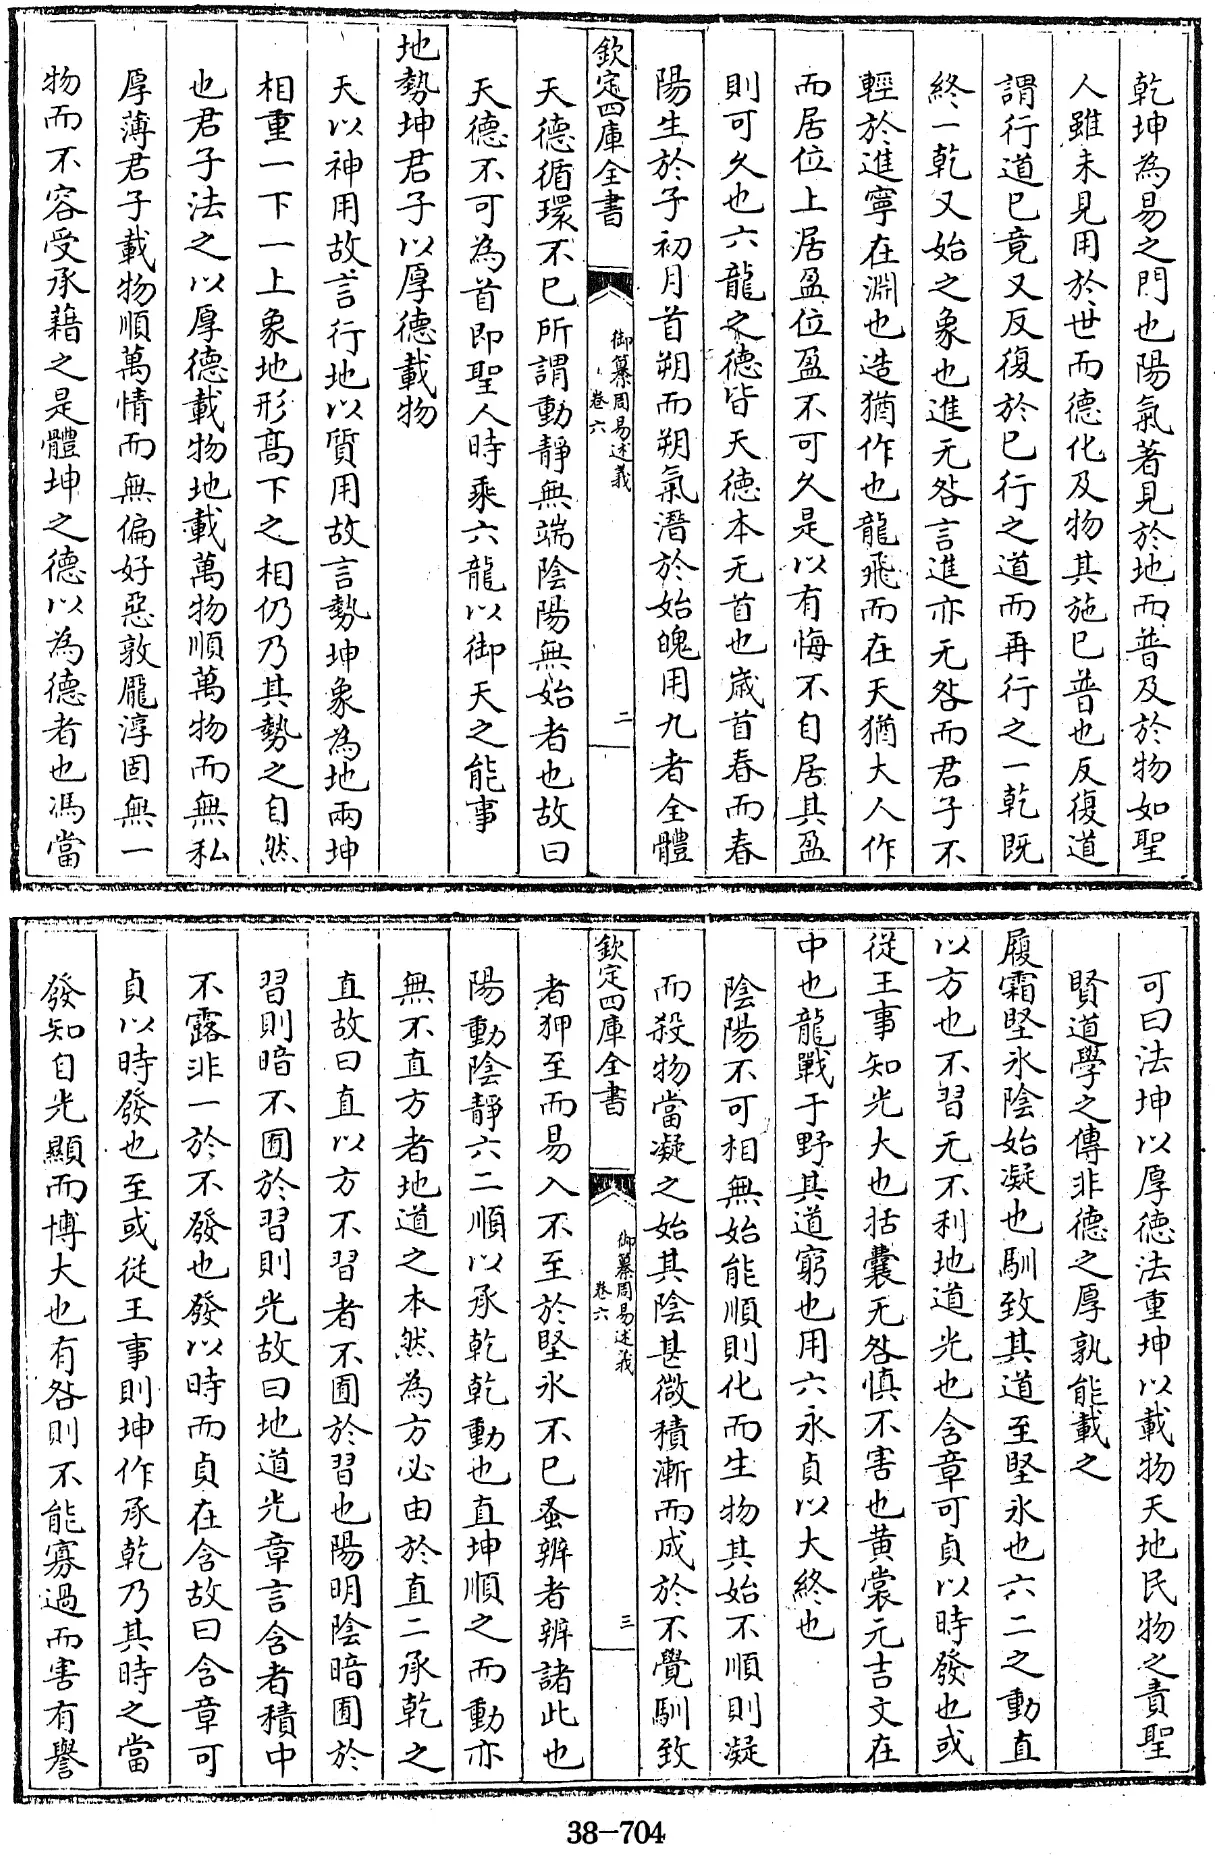 乾坤為易之門也陽氣著見於地而普及於物如聖
人雖未見用於世而德化及物其施已普也反復道
謂行道已竟又反復於已行之道而再行之一乾既
終一乾又始之象也進无咎言進亦无咎而君子不
輕於進寧在淵也造猶作也龍飛而在天猶大人作
而居位上居盈位盈不可久是以有悔不自居其盈
則可久也六龍之德皆天德本无首也歳首春而春
陽生於子初月首朔而朔氣潛於始魄用九者全體
欽定四庫全書
御纂周易述義
卷六
二
天德循環不已所謂動靜無端陰陽無始者也故曰
天德不可為首即聖人時乘六龍以御天之能事
地勢坤君子以厚德載物
天以神用故言行地以質用故言勢坤象為地兩坤
相重一下一上象地形髙下之相仍乃其勢之自然
也君子法之以厚德載物地載萬物順萬物而無私
厚薄君子載物順萬情而無偏好惡敦龎淳固無一
物而不容受承藉之是體坤之德以為德者也馮當
可曰法坤以厚德法重坤以載物天地民物之責聖
賢道學之傳非德之厚孰能載之
履霜堅氷陰始凝也馴致其道至堅氷也六二之動直
以方也不習无不利地道光也含章可貞以時發也或
從王事知光大也括囊无咎慎不害也黄裳元吉文在
中也龍戰于野其道窮也用六永貞以大終也
陰陽不可相無始能順則化而生物其始不順則凝
而殺物當凝之始其陰甚微積漸而成於不覺馴致
欽定四庫全書
御纂周易述義
卷六
三
者狎至而易入不至於堅氷不已蚤辨者辨諸此也
陽動陰靜六二順以承乾乾動也直坤順之而動亦
無不直方者地道之本然為方必由於直二承乾之
直故曰直以方不習者不囿於習也陽明陰暗囿於
習則暗不囿於習則光故曰地道光章言含者積中
不露非一於不發也發以時而貞在含故曰含章可
貞以時發也至或從王事則坤作承乾乃其時之當
發知自光顯而博大也有咎則不能寡過而害有譽
38-704